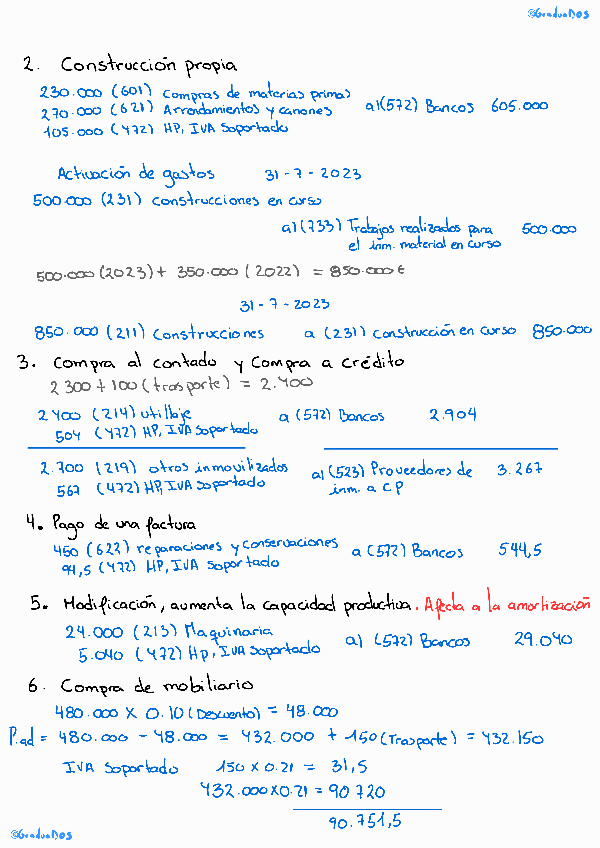 @GraduaDOS
2. Construcción propia
230.000 (601) Compras de materias primas
270.000 (621) Arrendamientos y canones a)(572) Bancos 605.000
105.000 (472) HP, IVA Soportado
Activación de gastos 31-7-2023
500.000 (231) construcciones en curso
a) (733) Trabajos realizados para 500.000
el inm. material en curso
500.000 (2023) + 350.000 (2022) = 850.000 €
31-7-2023
850.000 (211) Construcciones a (231) Construcción en curso 850.000
3. Compra al contado y Compra a crédito
2300 + 100 (trasporte) = 2.400
2400 (214) utillaje a (572) Bancos 2.904
504 (472) HP, IVA Soportado
2.700 (219) otros inmovilizados a) (523) Proveedores de 3.267
567 (472) HP, IVA Soportado inm. a CP
4. Pago de una factura
450 (622) reparaciones y conservaciones a (572) Bancos 544,5
94,5 (472) HP, IVA Soportado
5. Modificación, aumenta la capacidad productiva. Afecta a la amortización
24.000 (213) Maquinaria a) (572) Bancos 29.040
5.040 (472) Hp, IVA Soportado
6. Compra de mobiliario
480.000 x 0.10 (Descuento) = 48.000
P.ad = 480.000 - 48.000 = 432.000 + 150 (Trasporte) = 432.150
IVA Soportado 150 x 0.21 = 31,5
432.000 x 0.21 = 90 720
90.751,5
@GraduaDOS